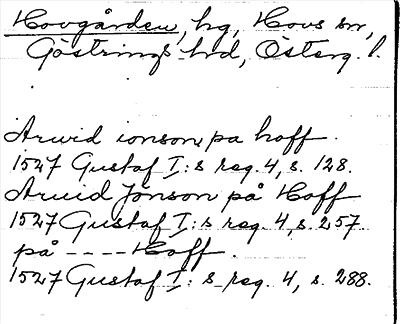 Hovgården, hg, Hovs sn,
Göstrings hrd, Österg. l.
Arwid ionson pa hoff.
1527 Gustaf I:s reg. 4, s. 128.
Arvid Jönson på Hoff
1527 Gustaf I:s reg. 4, s. 257
på ---- Hoff.
1527 Gustaf I:s reg. 4, s. 288.